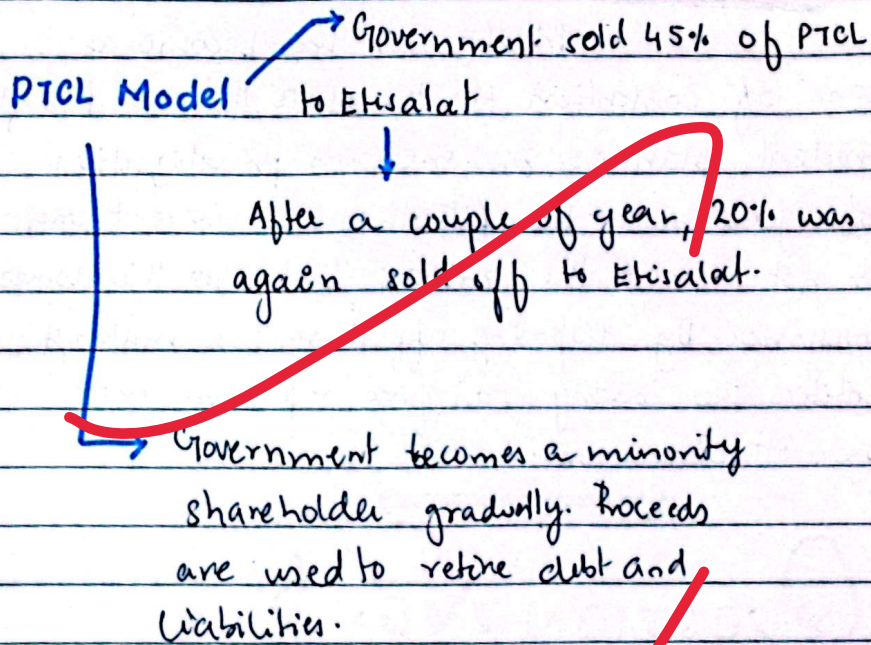 Government sold 45% of PTCL
PTCL Model to Etisalat
After a couple of year, 20% was
again sold off to Etisalat.
Government becomes a minority
shareholder gradually. Proceeds
are used to retire debt and
liabilities.